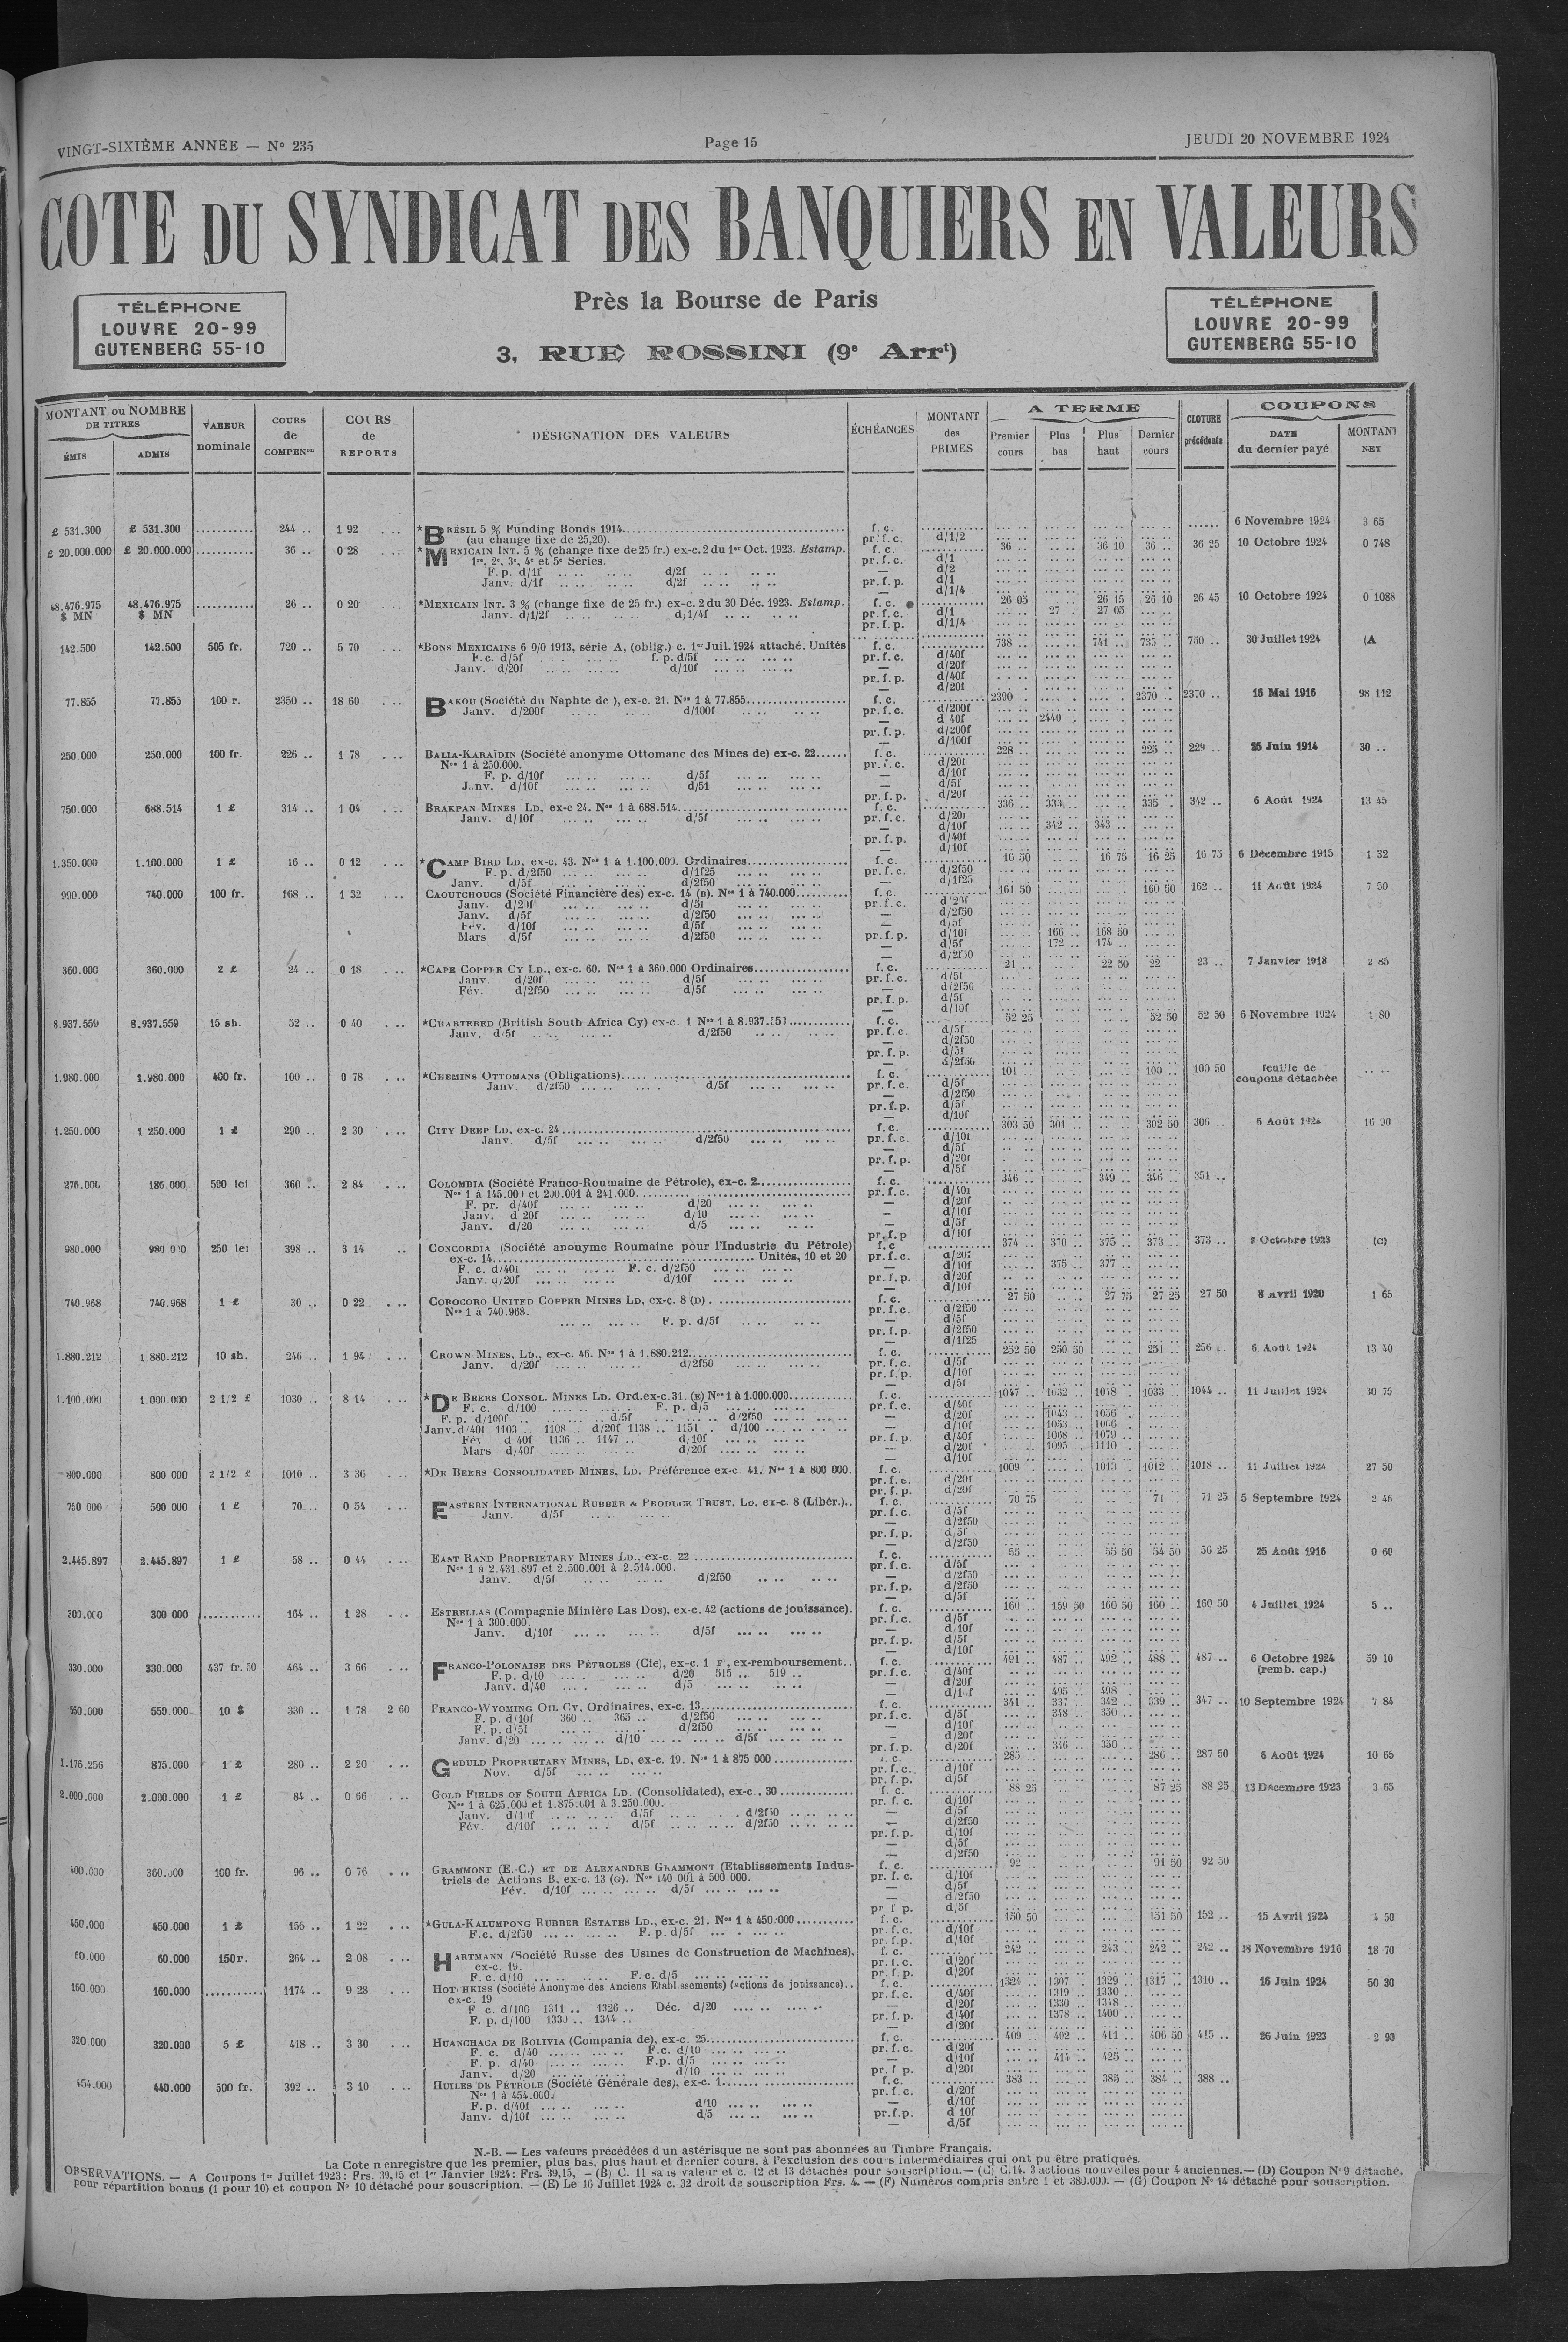 VINGT-SIXIÈME ANNÉE — N° 235
Page 15
JEUDI 20 NOVEMBRE 1924
COTE DU SYNDICAT DES BANQUIERS EN VALEURS
Près la Bourse de Paris
3, RUE ROSSINI (9e Arrt)
TÉLÉPHONE
LOUVRE 20-99
GUTENBERG 55-10
TÉLÉPHONE
LOUVRE 20-99
GUTENBERG 55-10
MONTANT ou NOMBRE DE TITRES ÉMIS ADMIS
VALEUR nominale
COURS de COMPENon
COURS de REPORTS
DÉSIGNATION DES VALEURS
ÉCHÉANCES
MONTANT des PRIMES
A TERME Premier cours Plus bas Plus haut Dernier cours
CLOTURE précédente
COUPONS DATE du dernier payé MONTANT NET
£ 531.300 £ 531.300 244 .. 1 92 *BRÉSIL 5 % Funding Bonds 1914 f. c. 6 Novembre 1924 3 65
(au change fixe de 25,20). pr. f. c. d/1/2
£ 20.000.000 £ 20.000.000 36 .. 0 28 *MEXICAIN INT. 5 % (change fixe de 25 fr.) ex-c. 2 du 1er Oct. 1923. Estamp. f. c. 36 .. 36 10 36 .. 36 25 10 Octobre 1924 0 748
1re, 2e, 3e, 4e et 5e Séries. pr. f. c. d/1
F. p. d/1f d/2f — d/2
Janv. d/1f d/2f pr. f. p. d/1
— d/1/4
48.476.975 $ MN 48.476.975 $ MN 26 .. 0 20 *MEXICAIN INT. 3 % (change fixe de 25 fr.) ex-c. 2 du 30 Déc. 1923. Estamp. f. c. 26 05 26 15 26 10 26 45 10 Octobre 1924 0 1088
Janv. d/1/2f d/1/4f pr. f. c. d/1 27 . 27 05
pr. f. p. d/1/4
142.500 142.500 505 fr. 720 .. 5 70 *BONS MEXICAINS 6 0/0 1913, série A, (oblig.) c. 1er Juil. 1924 attaché. Unités f. c. 738 .. 741 .. 735 .. 750 .. 30 Juillet 1924 (A
F.c. d/5f f. p. d/5f pr. f. c. d/40f
Janv. d/20f d/10f — d/20f
pr. f. p. d/40f
— d/20f
77.855 77.855 100 r. 2350 .. 18 60 BAKOU (Société du Naphte de ), ex-c. 21. Nos 1 à 77.855 f. c. 2390 . 2370 .. 2370 .. 16 Mai 1916 98 112
Janv. d/200f d/100f pr. f. c. d/200f
— d 40f 2440 .
pr. f. p. d/200f
— d/100f
250 000 250.000 100 fr. 226 .. 1 78 BALIA-KARAÏDIN (Société anonyme Ottomane des Mines de) ex-c. 22 f. c. 228 .. 225 .. 229 .. 25 Juin 1914 30 ..
Nos 1 à 250.000. pr. f. c. d/20f
F. p. d/10f d/5f — d/10f
Janv. d/10f d/5f — d/5f
pr. f. p. d/20f
750.000 688.514 1 £ 314 .. 1 04 BRAKPAN MINES LD. ex-c 24. Nos 1 à 688.514 f. c. 336 .. 333 .. 335 . 342 .. 6 Août 1924 13 45
Janv. d/10f d/5f pr. f. c. d/20f
— d/10f 342 .. 343 ..
pr. f. p. d/40f
— d/10f
1.350.000 1.100.000 1 £ 16 .. 0 12 *CAMP BIRD LD, ex-c. 43. Nos 1 à 1.100.000. Ordinaires f. c. 16 50 16 75 16 25 16 75 6 Décembre 1915 1 32
F. p. d/2f50 d/1f25 pr. f. c. d/2f50
Janv. d/5f d/2f50 — d/1f25
990.000 740.000 100 fr. 168 .. 1 32 CAOUTCHOUCS (Société Financière des) ex-c. 14 (B). Nos 1 à 740.000 f. c. 161 50 160 50 162 .. 11 Août 1924 7 50
Janv. d/20f d/5f pr. f. c. d/20f
Janv. d/5f d/2f50 — d/2f50
Fév. d/10f d/5f — d/5f
Mars d/5f d/2f50 pr. f. p. d/10f 166 .. 168 50
— d/5f 172 .. 174 ..
— d/2f50
360.000 360.000 2 £ 24 .. 0 18 *CAPE COPPER CY LD., ex-c. 60. Nos 1 à 360.000 Ordinaires f. c. 21 .. 22 50 22 23 .. 7 Janvier 1918 2 85
Janv. d/20f d/5f pr. f. c. d/5f
Fév. d/2f50 d/5f — d/2f50
pr. f. p. d/5f
— d/10f
8.937.559 8.937.559 15 sh. 52 .. 0 40 *CHARTERED (British South Africa Cy) ex-c. 1 Nos 1 à 8.937.559 f. c. 52 25 52 50 52 50 6 Novembre 1924 1 80
Janv. d/5f d/2f50 pr. f. c. d/5f
— d/2f50
pr. f. p. d/5f
— d/2f50
1.980.000 1.980.000 400 fr. 100 .. 0 78 *CHEMINS OTTOMANS (Obligations) f. c. 101 .. 100 .. 100 50 feuille de coupons détachée
Janv. d/2f50 d/5f pr. f. c. d/5f
— d/2f50
pr. f. p. d/5f
— d/10f
1.250.000 1 250.000 1 £ 290 .. 2 30 CITY DEEP LD. ex-c. 24 f. c. 303 50 301 .. 302 50 306 .. 6 Août 1924 16 90
Janv. d/5f d/2f50 pr. f. c. d/10f
— d/5f
pr. f. p. d/20f
— d/5f
276.000 186.000 500 lei 360 .. 2 84 COLOMBIA (Société Franco-Roumaine de Pétrole), ex-c. 2 f. c. 346 .. 349 .. 346 .. 351 ..
Nos 1 à 145.000 et 200.001 à 241.000 pr. f. c. d/40f
F. pr. d/40f d/20 — d/20f
Janv. d 20f d/10 — d/10f
Janv. d/20 d/5 — d/5f
pr. f. p d/10f
980.000 980 000 250 lei 398 .. 3 14 CONCORDIA (Société anonyme Roumaine pour l'Industrie du Pétrole) f. c 374 .. 370 .. 375 .. 373 .. 373 .. 2 Octobre 1923 (C)
ex-c. 14 Unités, 10 et 20 pr. f. c. d/20f
F. c. d/40f F. c. d/2f50 — d/10f 375 .. 377 ..
Janv. d/20f d/10f pr. f. p. d/20f
— d/10f
740.968 740.968 1 £ 30 .. 0 22 COROCORO UNITED COPPER MINES LD, ex-c. 8 (D) f. c. 27 50 27 75 27 25 27 50 8 Avril 1920 1 65
Nos 1 à 740.968. pr. f. c. d/2f50
F. p. d/5f — d/5f
pr. f. p. d/2f50
— d/1f25
1.880.212 1.880.212 10 sh. 246 .. 1 94 CROWN MINES, LD., ex-c. 46. Nos 1 à 1.880.212 f. c. 252 50 250 50 251 .. 256 .. 6 Août 1924 13 40
Janv. d/20f d/2f50 pr. f. c. d/5f
pr. f. p. d/10f
— d/5f
1.100.000 1.000.000 2 1/2 £ 1030 .. 8 14 *DE BEERS CONSOL. MINES LD. Ord. ex-c. 31. (E) Nos 1 à 1.000.000 f. c. 1047 .. 1032 .. 1048 .. 1033 .. 1044 .. 11 Juillet 1924 30 75
F. c. d/100 F. p. d/5 pr. f. c. d/40f
F. p. d/100f d/5f d/2f50 — d/20f 1043 .. 1056
Janv. d/40f 1103 .. 1108 . d/20f 1138 .. 1151 . d/100 — d/10f 1053 .. 1066
Fév d/40f 1136 .. 1147 .. d/10f pr. f. p. d/40f 1068 .. 1079
Mars d/40f d/20f — d/20f 1095 .. 1110
— d/10f
800.000 800 000 2 1/2 £ 1010 .. 3 36 *DE BEERS CONSOLIDATED MINES, LD. Préférence ex-c. 41. Nos 1 à 800 000. f. c. 1009 . 1013 . 1012 .. 1018 .. 11 Juillet 1924 27 50
pr. f. c. d/20f
pr. f. p. d/20f
750 000 500 000 1 £ 70 .. 0 54 EASTERN INTERNATIONAL RUBBER & PRODUCE TRUST, LD, ex-c. 8 (Libér.).. f. c. 70 75 71 .. 71 25 5 Septembre 1924 2 46
Janv. d/5f pr. f. c. d/5f
— d/2f50
pr. f. p. d/5f
— d/2f50
2.445.897 2.445.897 1 £ 58 .. 0 44 EAST RAND PROPRIETARY MINES LD., ex-c. 22 f. c. 55 .. 55 50 54 50 56 25 25 Août 1916 0 60
Nos 1 à 2.431.897 et 2.500.001 à 2.514.000. pr. f. c. d/5f
Janv. d/5f d/2f50 — d/2f50
pr. f. p. d/2f50
— d/5f
300.000 300 000 164 .. 1 28 ESTRELLAS (Compagnie Minière Las Dos), ex-c. 42 (actions de jouissance). f. c. 160 .. 159 50 160 50 160 .. 160 50 4 Juillet 1924 5 ..
Nos 1 à 300.000. pr. f. c. d/5f
Janv. d/10f d/5f — d/10f
pr. f. p. d/5f
— d/10f
330.000 330.000 437 fr. 50 464 .. 3 66 FRANCO-POLONAISE DES PÉTROLES (Cie), ex-c. 1 F, ex-remboursement.. f. c. 491 .. 487 .. 492 .. 488 .. 487 .. 6 Octobre 1924 59 10
F. p. d/10 d/20 515 .. 519 .. pr. f. c. d/40f (remb. cap.)
Janv. d/40 d/5 — d/20f
— d/10f 495 .. 498 ..
550.000 550.000 10 $ 330 .. 1 78 2 60 FRANCO-WYOMING OIL CY, Ordinaires, ex-c. 13 f. c. 341 .. 337 .. 342 .. 339 .. 347 .. 10 Septembre 1924 7 84
F. p. d/10f 360 .. 365 .. d/2f50 pr. f. c. d/5f 348 .. 350 ..
F. p. d/5f d/2f50 — d/10f
Janv. d/20 d/10 d/5f — d/20f
pr. f. p. d/20f 346 .. 350 ..
1.176.256 875.000 1 £ 280 .. 2 20 GEDULD PROPRIETARY MINES, LD, ex-c. 19. Nos 1 à 875 000 f. c. 285 .. 286 .. 287 50 6 Août 1924 10 65
Nov. d/5f pr. f. c. d/10f
pr. f. p. d/5f
2.000.000 2.000.000 1 £ 84 .. 0 66 GOLD FIELDS OF SOUTH AFRICA LD. (Consolidated), ex-c. 30 f. c. 88 25 87 25 88 25 13 Décembre 1923 3 65
Nos 1 à 625.000 et 1.875.001 à 3.250.000. pr. f. c. d/10f
Janv. d/10f d/5f d/2f50 — d/5f
Fév. d/10f d/5f d/2f50 — d/2f50
pr. f. p. d/10f
— d/5f
— d/2f50
400.000 360.000 100 fr. 96 .. 0 76 GRAMMONT (E.-C.) ET DE ALEXANDRE GRAMMONT (Etablissements Indus- f. c. 92 .. 91 50 92 50
triels de Actions B, ex-c. 13 (G). Nos 140 001 à 500.000. pr. f. c. d/10f
Fév. d/10f d/5f — d/5f
— d/2f50
pr f p. d/5f
450.000 450.000 1 £ 156 .. 1 22 *GULA-KALUMPONG RUBBER ESTATES LD., ex-c. 21. Nos 1 à 450.000 f. c. 150 50 151 50 152 .. 15 Avril 1924 50
F.c. d/2f50 F. p. d/5f pr. f. c. d/10f
pr. f. p. d/10f
60.000 60.000 150 r. 264 .. 2 08 HARTMANN (Société Russe des Usines de Construction de Machines), f. c. 242 .. 243 .. 242 .. 242 .. 28 Novembre 1916 18 70
ex-c. 19. pr. f. c. d/20f
F. c. d/10 F. c. d/5 pr. f. p. d/20f
160.000 160.000 1174 .. 9 28 HOTCHKISS (Société Anonyme des Anciens Etabl ssements) (actions de jouissance).. f. c. 1324 .. 1307 .. 1329 .. 1317 .. 1310 .. 16 Juin 1924 50 30
ex-c. 19 pr. f. c. d/40f 1319 .. 1330 ..
F c. d/100 1311 .. 1326 .. Déc. d/20 — d/20f 1330 .. 1348 ..
F. p. d/100 1330 .. 1344 .. pr. f. p. d/40f 1378 .. 1400 ..
— d/20f
320.000 320.000 5 £ 418 .. 3 30 HUANCHACA DE BOLIVIA (Compania de), ex-c. 25 f. c. 409 .. 402 .. 411 .. 406 50 415 .. 26 Juin 1923 2 90
F. c. d/40 F.c. d/10 pr. f. c. d/20f
F. p. d/40 F.p. d/5 — d/10f 414 .. 425 ..
Janv. d/20 d/10 pr. f p. d/20f
454.000 440.000 500 fr. 392 .. 3 10 HUILES DE PÉTROLE (Société Générale des), ex-c. 1 f. c. 383 .. 385 .. 384 .. 388 ..
Nos 1 à 454.000. pr. f. c. d/20f
F. p. d/40f d/10 — d/10f
Janv. d/10f d/5 pr. f. p. d 10f
— d/5f
N.-B. — Les valeurs précédées d un astérisque ne sont pas abonnées au Timbre Français.
La Cote n enregistre que les premier, plus bas, plus haut et dernier cours, à l'exclusion des cours intermédiaires qui ont pu être pratiqués.
OBSERVATIONS. — A Coupons 1er Juillet 1923: Frs. 39,15 et 1er Janvier 1924: Frs. 39,15, — (B) C. 11 sans valeur et c. 12 et 13 détachés pour souscription. — (C) C. 14. 3 actions nouvelles pour 4 anciennes. — (D) Coupon N° 9 détaché,
pour répartition bonus (1 pour 10) et coupon N° 10 détaché pour souscription. — (E) Le 16 Juillet 1924 c. 32 droit de souscription Frs. 4. — (F) Numéros compris entre 1 et 380.000. — (G) Coupon N° 14 détaché pour souscription.